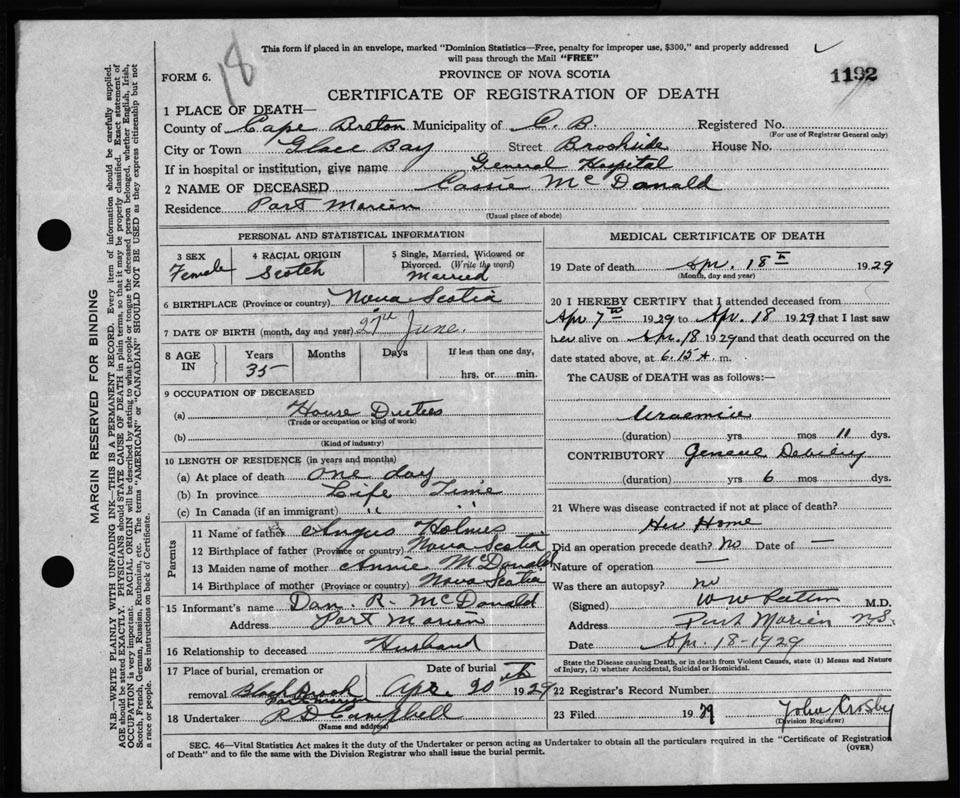 This form if placed in an envelope, marked "Dominion Statistics—Free, penalty for improper use, $300," and properly addressed
will pass through the Mail "FREE"
18
1192
FORM 6.
PROVINCE OF NOVA SCOTIA
CERTIFICATE OF REGISTRATION OF DEATH
1 PLACE OF DEATH—
County of Cape Breton Municipality of C. B. Registered No.
(For use of Registrar General only)
City or Town Glace Bay Street Brookside House No.
If in hospital or institution, give name General Hospital
2 NAME OF DECEASED Cassie McDonald
Residence Port Morien
(Usual place of abode)
PERSONAL AND STATISTICAL INFORMATION
3 SEX Female
4 RACIAL ORIGIN Scotch
5 Single, Married, Widowed or Divorced. (Write the word) Married
6 BIRTHPLACE (Province or country) Nova Scotia
7 DATE OF BIRTH (month, day and year) 27th June.
8 AGE IN Years 35 Months Days If less than one day, hrs. or min.
9 OCCUPATION OF DECEASED
(a) House Duties
(Trade or occupation or kind of work)
(b)
(Kind of industry)
10 LENGTH OF RESIDENCE (in years and months)
(a) At place of death one day
(b) In province Life Time
(c) In Canada (if an immigrant) " "
Parents
11 Name of father Angus Holmes
12 Birthplace of father (Province or country) Nova Scotia
13 Maiden name of mother Annie McDonald
14 Birthplace of mother (Province or country) Nova Scotia
15 Informant's name Dan. R. McDonald
Address Port Morien
16 Relationship to deceased Husband
17 Place of burial, cremation or removal Black Brook Port Morien
Date of burial Apr 20th 1929
18 Undertaker R D Campbell
(Name and address)
MEDICAL CERTIFICATE OF DEATH
19 Date of death Apr. 18th 1929
(Month, day and year)
20 I HEREBY CERTIFY that I attended deceased from
Apr 7th 1929 to Apr. 18 1929 that I last saw
her alive on Apr. 18 1929 and that death occurred on the
date stated above, at 6.15 A. m.
The CAUSE of DEATH was as follows:—
Uraemia
(duration) yrs mos 11 dys.
CONTRIBUTORY General Debility
(duration) yrs 6 mos dys.
21 Where was disease contracted if not at place of death?
Her Home
Did an operation precede death? No Date of —
Nature of operation —
Was there an autopsy? no
(Signed) W W Patton M.D.
Address Port Morien N.S.
Date Apr. 18-1929
State the Disease causing Death, or in death from Violent Causes, state (1) Means and Nature
of Injury, (2) whether Accidental, Suicidal or Homicidal.
22 Registrar's Record Number
23 Filed 1929 John Crosby
(Division Registrar)
SEC. 46—Vital Statistics Act makes it the duty of the Undertaker or person acting as Undertaker to obtain all the particulars required in the "Certificate of Registration
of Death" and to file the same with the Division Registrar who shall issue the burial permit.
(OVER)
MARGIN RESERVED FOR BINDING
N.B.—WRITE PLAINLY WITH UNFADING INK—THIS IS A PERMANENT RECORD. Every item of information should be carefully supplied.
AGE should be stated EXACTLY. PHYSICIANS should STATE CAUSE OF DEATH in plain terms, so that it may be properly classified. Exact statement of
OCCUPATION is very important. RACIAL ORIGIN will be described by stating to what people or tongue the deceased person belonged, whether English, Irish,
Scotch, French, German, Russian, Ruthenian, etc. The terms "AMERICAN" or "CANADIAN" SHOULD NOT BE USED as they express citizenship but not
a race or people. See instructions on back of Certificate.